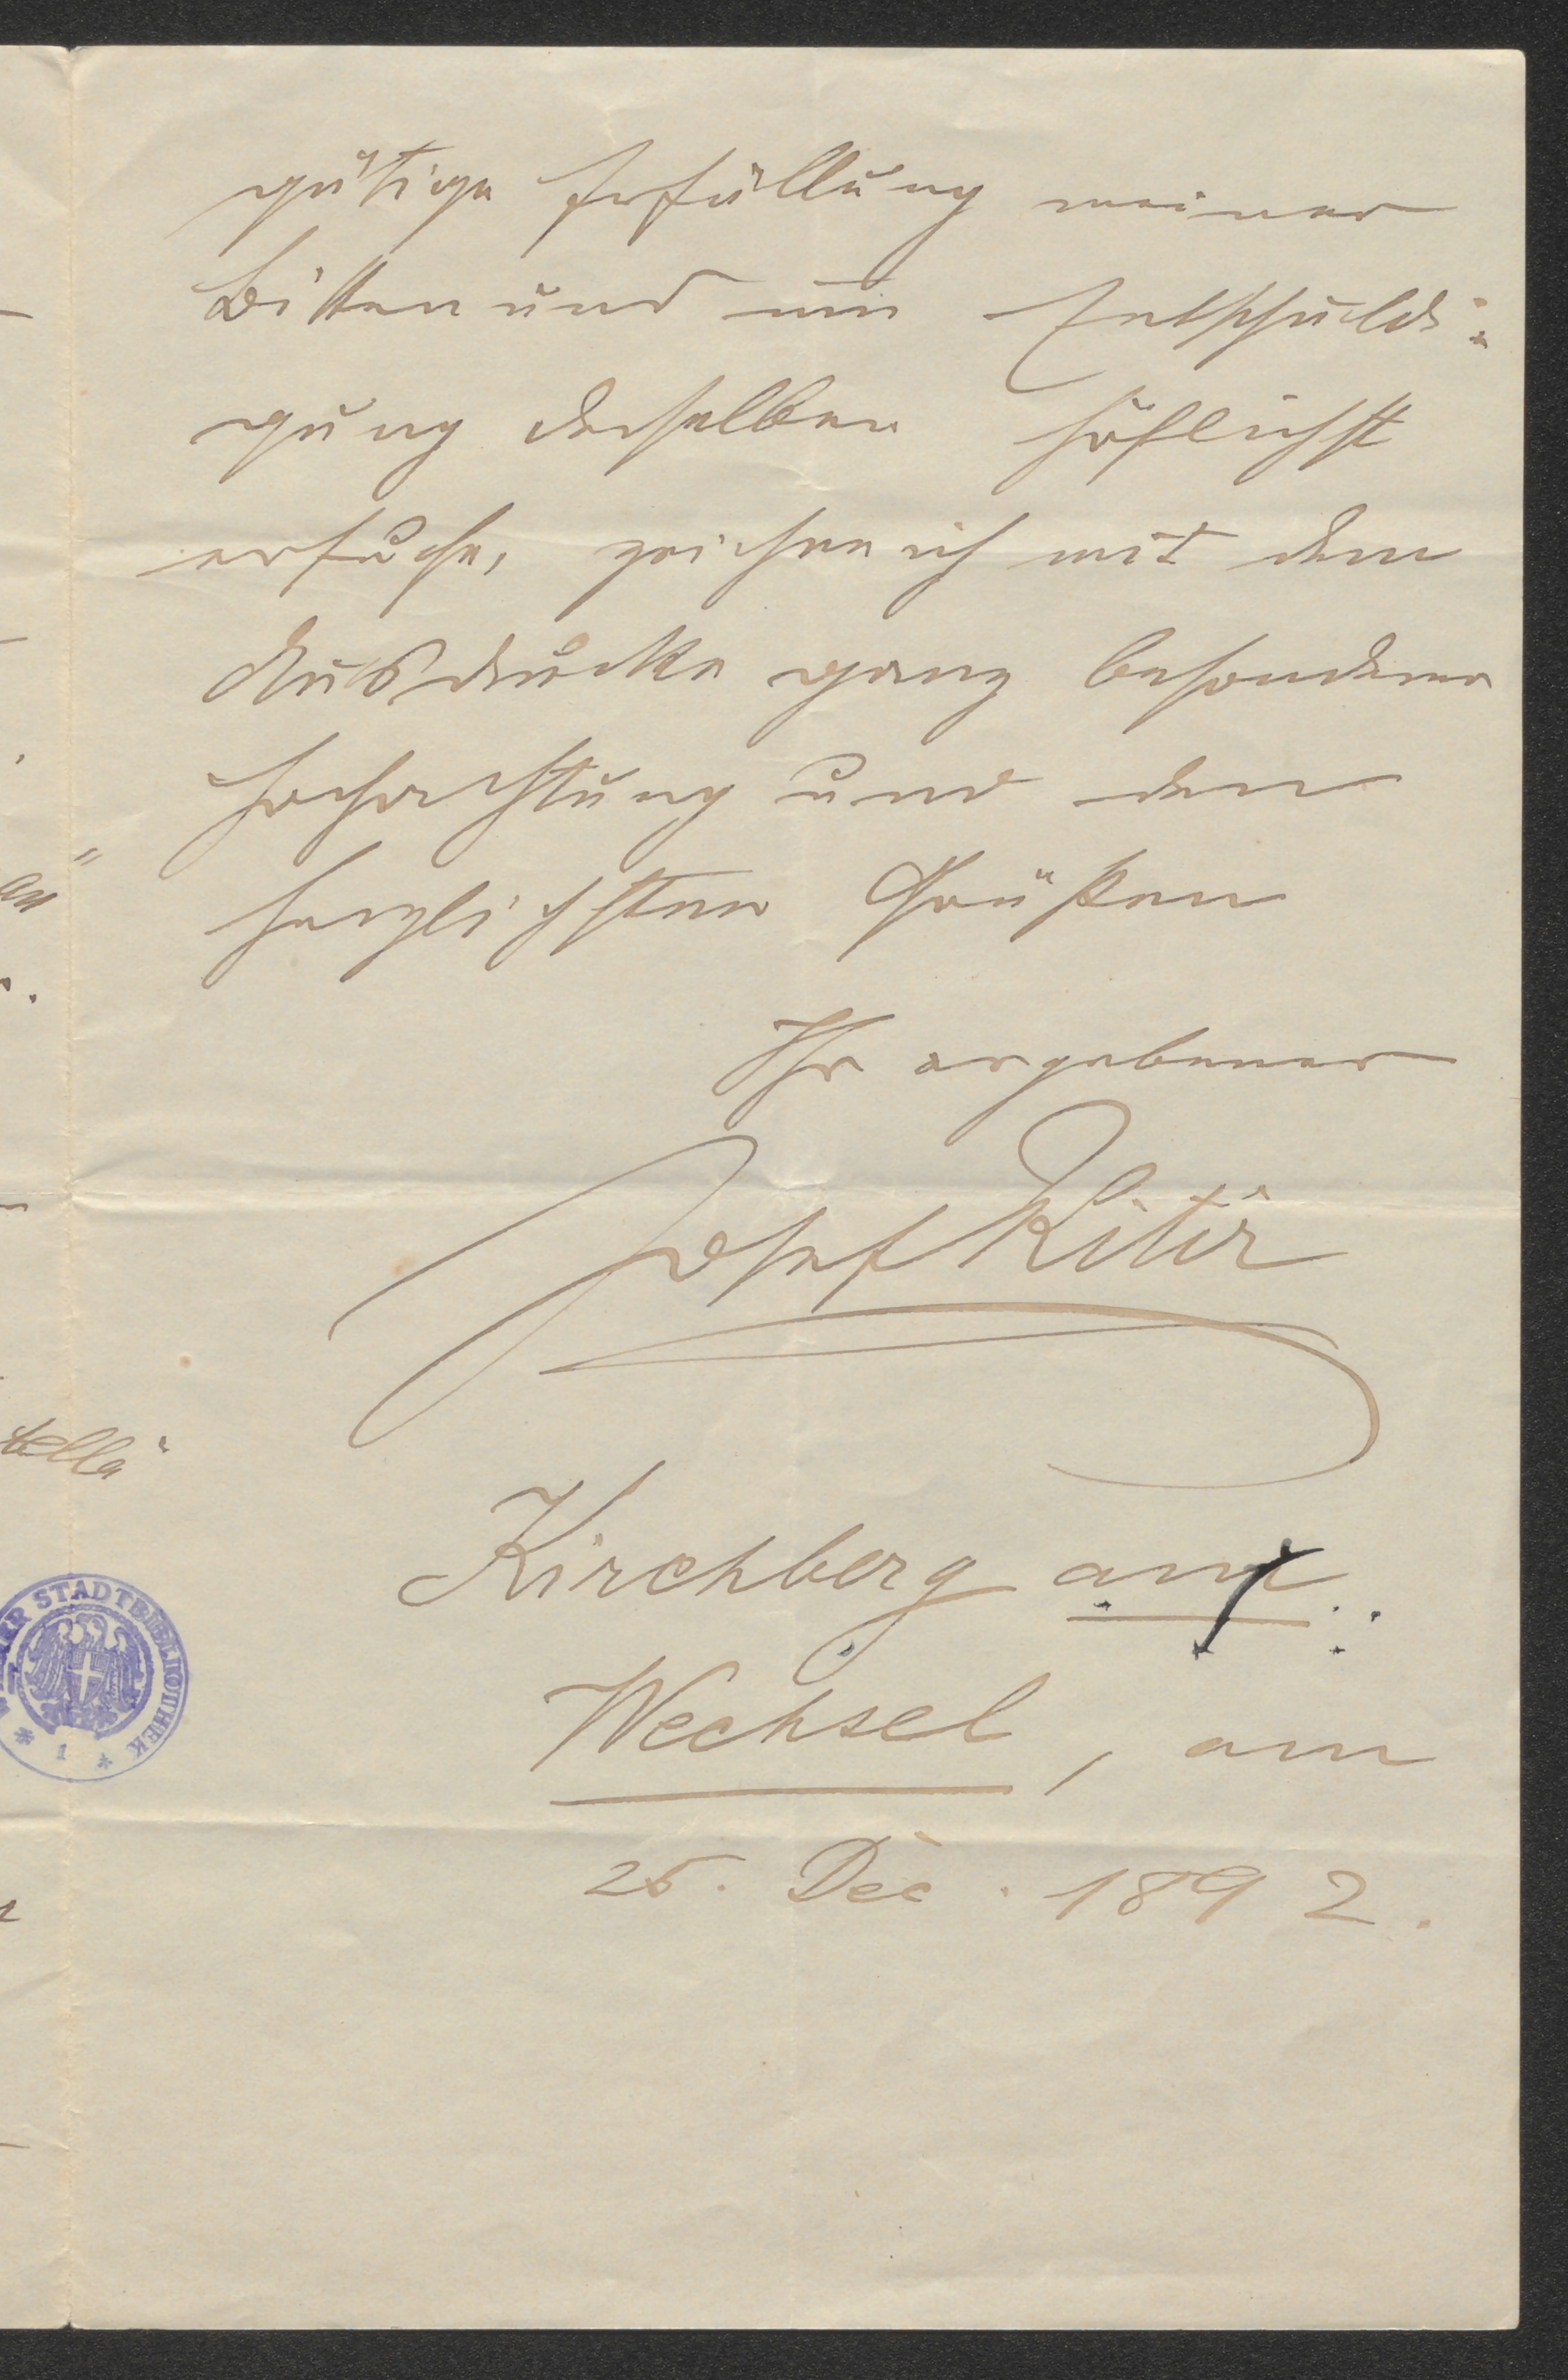 gütige Erfüllung meiner
Bitten und um Entschuldi-
gung derselben höflichst
ersuche, zeichne ich mit dem
Ausdrucke ganz besonderer
Hochachtung und den
herzlichsten Grüßen
Ihr ergebener
Josef Kitir
Kirchberg am
Wechsel, am
25. Dec. 1892.
STADTBIBLIOTHEK
* 1 *